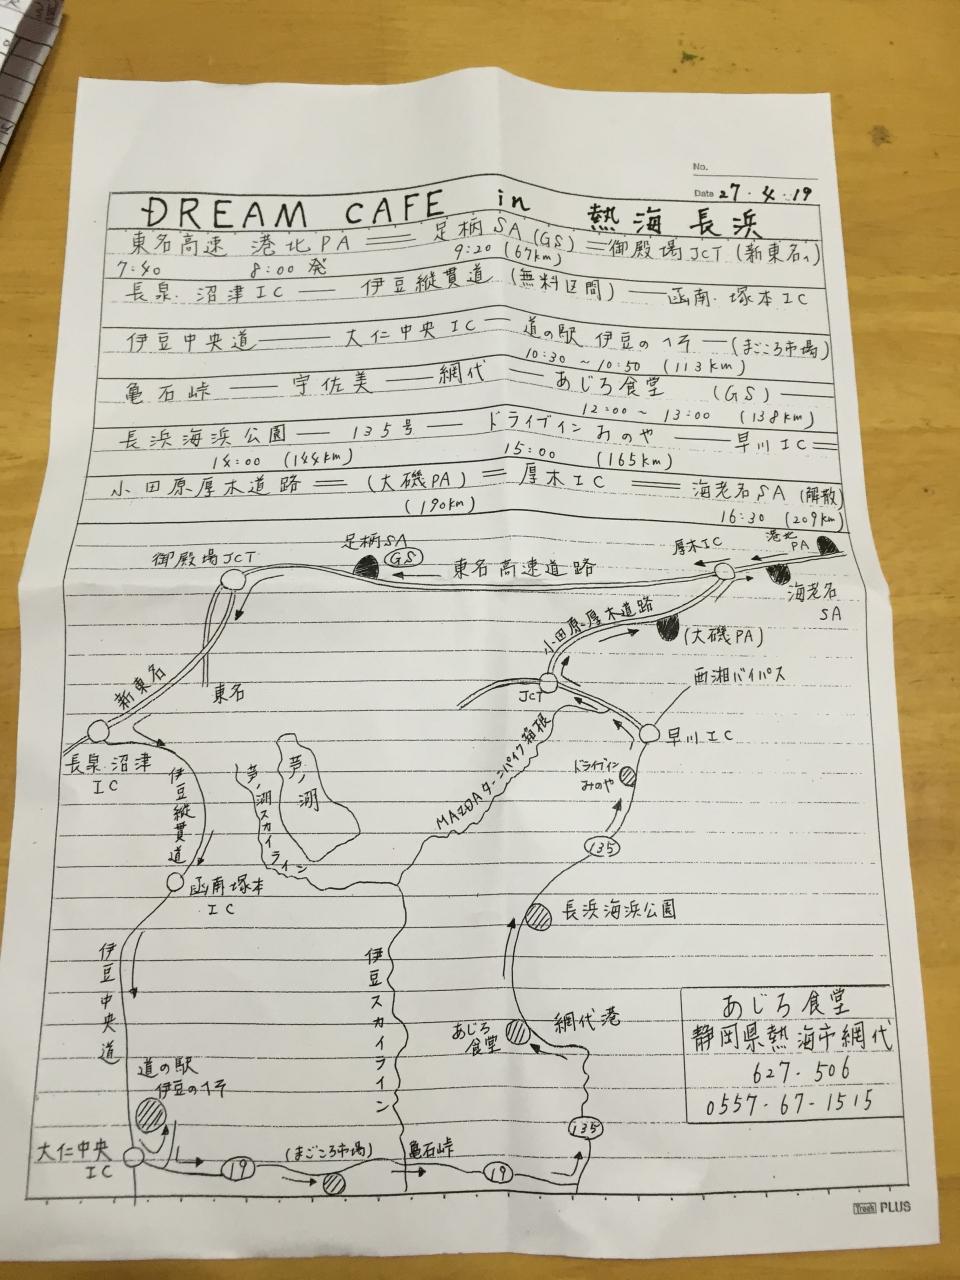 No.
Date 27・4・19
DREAM CAFE in 熱海長浜
東名高速 港北PA 足柄SA(GS) 御殿場JCT(新東名へ)
7:40 8:00発 9:20 (67km)
長泉.沼津IC 伊豆縦貫道 (無料区間) 函南.塚本IC
伊豆中央道 大仁中央IC 道の駅 伊豆のへそ (まごころ市場)
10:30 ~ 10:50 (113km)
亀石峠 宇佐美 網代 あじろ食堂 (GS)
12:00 ~ 13:00 (138km)
長浜海浜公園 135号 ドライブイン みのや 早川IC
14:00 (144km) 15:00 (165km)
小田原厚木道路 (大磯PA) 厚木IC 海老名SA(解散)
(190km) 16:30 (209km)
御殿場JCT
足柄SA
GS
東名高速道路
厚木IC
港北
PA
海老名
SA
小田原厚木道路
(大磯PA)
新東名
東名
JCT
西湘バイパス
早川IC
長泉.沼津
IC
伊豆縦貫道
芦ノ湖スカイライン
芦ノ湖
MAZDAターンパイク箱根
ドライブイン
みのや
135
函南塚本
IC
長浜海浜公園
伊豆中央道
伊豆スカイライン
あじろ
食堂
網代港
あじろ食堂
静岡県熱海市網代
627・506
0557・67・1515
道の駅
伊豆のへそ
135
大仁中央
IC
19
(まごころ市場)
亀石峠
19
Treek PLUS